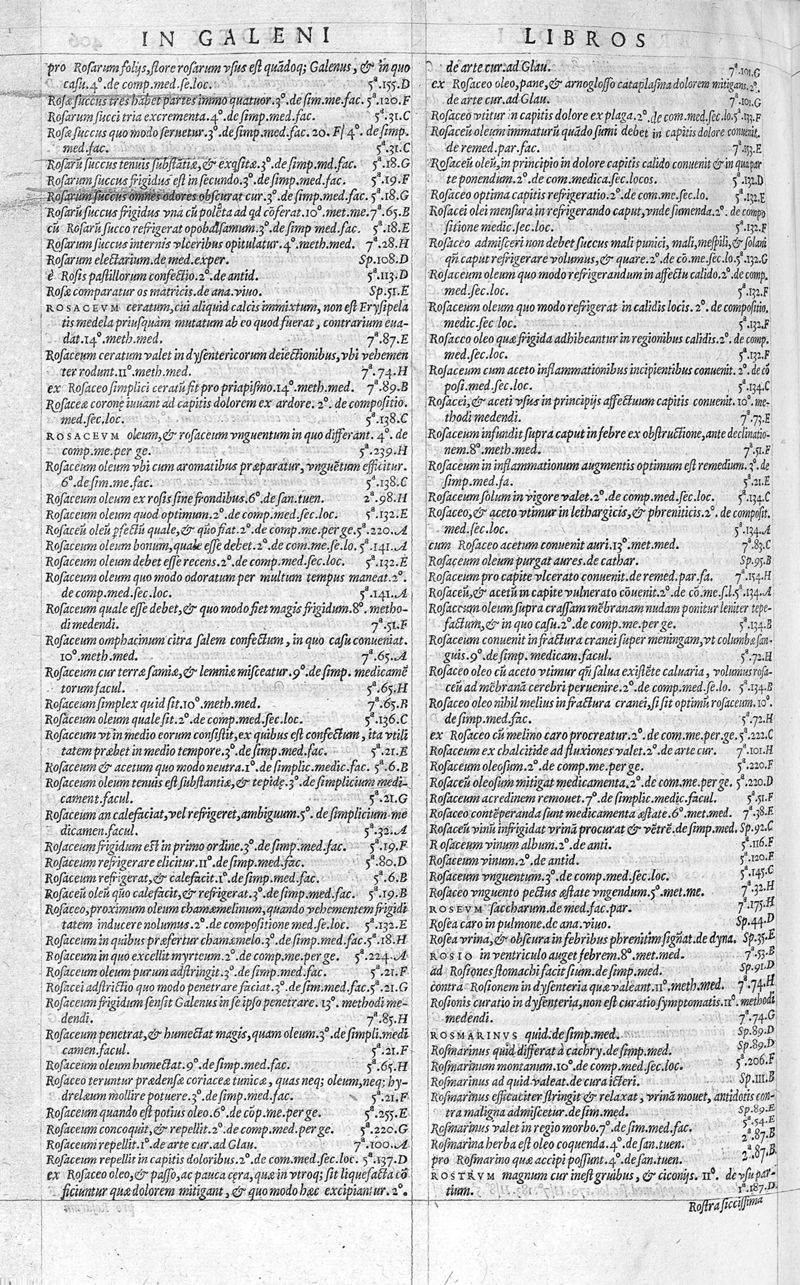 IN GALENI
pro Rosarum folijs, flore rosarum vsus est quãdoq; Galenus, & in quo
casu. 4°. de comp. med. se. loc. 5ª. 155. D
Rosæ succus tres habet partes immo quatuor. 3°. de sim. me. fac. 5ª. 120. F
Rosarum succi tria excrementa. 4°. de simp. med. fac. 5ª. 31. C
Rosæ succus quo modo seruetur. 3°. de simp. med. fac. 20. F/ 4°. de simp.
med. fac. 5ª. 31. C
Rosarũ succus tenuis substãtiæ, & exqsitæ. 3°. de simp. md. fac. 5ª. 18. G
Rosarum succus frigidus est in secundo. 3°. de simp. med. fac. 5ª. 19. F
Rosarum succus omnes odores obscurat cur. 3°. de simp. med. fac. 5ª. 18. G
Rosarũ succus frigidus vna cũ polẽta ad qd cõferat. 10°. met. me. 7ª. 65. B
cũ Rosarũ succo refrigerat opobalsamum. 3°. de simp med. fac. 5ª. 18. E
Rosarum succus internis vlceribus opitulatur. 4°. meth. med. 7ª. 28. H
Rosarum electarium. de med. exper. Sp. 108. D
è Rosis pastillorum confectio. 2°. de antid. 5ª. 113. D
Rosæ comparatur os matricis. de ana. viuo. Sp. 51. E
ROSACEVM ceratum, cui aliquid calcis immixtum, non est Erysipela
tis medela priusquàm mutatum ab eo quod fuerat, contrarium eua-
dat. 14°. meth. med. 7ª. 87. E
Rosaceum ceratum valet in dysentericorum deiectionibus, vbi vehemen
ter rodunt. 11°. meth. med. 7ª. 74. H
ex Rosaceo simplici ceratũ fit pro priapismo. 14°. meth. med. 7ª. 89. B
Rosaceæ coronę iuuant ad capitis dolorem ex ardore. 2°. de compositio.
med. sec. loc. 5ª. 138. C
ROSACEVM oleum, & rosaceum vnguentum in quo differant. 4°. de
comp. me. per ge. 5ª. 239. H
Rosaceum oleum vbi cum aromatibus præparatur, vnguẽtum efficitur.
6°. de sim. me. fac. 5ª. 138. C
Rosaceum oleum ex rosis sine frondibus. 6°. de san. tuen. 2ª. 98. H
Rosaceum oleum quod optimum. 2°. de comp. med. sec. loc. 5ª. 132. E
Rosaceũ oleũ pfectũ quale, & qũo fiat. 2°. de comp. me. per ge. 5ª. 220. A
Rosaceum oleum bonum, quale esse debet. 2°. de com. me. se. lo. 5ª. 141. A
Rosaceum oleum debet esse recens. 2°. de comp. med. sec. loc. 5ª. 132. E
Rosaceum oleum quo modo odoratum per multum tempus maneat. 2°.
de comp. med. sec. loc. 5ª. 141. A
Rosaceum quale esse debet, & quo modo fiet magis frigidum. 8°. metho-
di medendi. 7ª. 51. F
Rosaceum omphacinum citra salem confectum, in quo casu conueniat.
10°. meth. med. 7ª. 65. A
Rosaceum cur terræ samiæ, & lemniæ misceatur. 9°. de simp. medicamẽ
torum facul. 5ª. 65. H
Rosaceum simplex quid sit. 10°. meth. med. 7ª. 65. B
Rosaceum oleum quale sit. 2°. de comp. med. sec. loc. 5ª. 136. C
Rosaceum vt in medio eorum consistit, ex quibus est confectum, ita vtili
tatem præbet in medio tempore. 3°. de simp. med. fac. 5ª. 21. E
Rosaceum & acetum quo modo neutra. 1°. de simplic. medic. fac. 5ª. 6. B
Rosaceum oleum tenuis est substantiæ, & tepidę. 3°. de simplicium medi-
cament. facul. 5ª. 21. G
Rosaceum an calefaciat, vel refrigeret, ambiguum. 5°. de simplicium me
dicamen. facul. 5ª. 32. A
Rosaceum frigidum est in primo ordine. 3°. de simp. med. fac. 5ª. 19. F
Rosaceum refrigerare elicitur. 11°. de simp. med. fac. 5ª. 80. D
Rosaceum refrigerat, & calefacit. 1°. de simp. med. fac. 5ª. 6. B
Rosaceũ oleũ qũo calefacit, & refrigerat. 3°. de simp. med. fac. 5ª. 19. B
Rosaceo, proximum oleum chamæmelinum, quando vehementem frigidi
tatem inducere nolumus. 2°. de compositione med. se. loc. 5ª. 132. E
Rosaceum in quibus præfertur chamæmelo. 3°. de simp. med. fac. 5ª. 18. H
Rosaceum in quo excellit myrteum. 2°. de comp. me. per ge. 5ª. 224. A
Rosaceum oleum purum adstringit. 3°. de simp. med. fac. 5ª. 21. F
Rosacei adstrictio quo modo penetrare faciat. 3°. de sim. med. fac. 5ª. 21. G
Rosaceum frigidum sensit Galenus in se ipso penetrare. 13°. methodi me-
dendi. 7ª. 85. H
Rosaceum penetrat, & humectat magis, quam oleum. 3°. de simpli. medi
camen. facul. 5ª. 21. F
Rosaceum oleum humectat. 9°. de simp. med. fac. 5ª. 65. H
Rosaceo teruntur prædensæ coriaceæ tunicæ, quas neq; oleum, neq; hy-
drelæum mollire potuere. 3°. de simp. med. fac. 5ª. 21. F
Rosaceum quando est potius oleo. 6°. de cõp. me. per ge. 5ª. 255. E
Rosaceum concoquit, & repellit. 2°. de comp. med. per ge. 5ª. 220. G
Rosaceum repellit. 1°. de arte cur. ad Glau. 7ª. 100. A
Rosaceum repellit in capitis doloribus. 2°. de com. med. sec. loc. 5ª. 137. D
ex Rosaceo oleo, & passo, ac pauca cęra, quæ in vtroq; sit liquefacta cõ
ficiuntur quæ dolorem mitigant, & quo modo hæc excipiantur. 2°.
LIBROS
de arte cur. ad Glau. 7ª. 101. G
ex Rosaceo oleo, pane, & arnoglosso cataplasma dolorem mitigans. 2°.
de arte cur. ad Glau. 7ª. 101. G
Rosaceo vtitur in capitis dolore ex plaga. 2°. de com. med. sec. lo. 5ª. 133. F
Rosaceũ oleum immaturũ quãdo sumi debet in capitis dolore conuenit.
de remed. par. fac. 7ª. 153. E
Rosaceũ oleũ, in principio in dolore capitis calido conuenit & in qua par
te ponendum. 2°. de com. medica. sec. locos. 5ª. 132. D
Rosaceo optima capitis refrigeratio. 2°. de com. me. sec. lo. 5ª. 132. E
Rosacei olei mensura in refrigerando caput, vnde sumenda. 2°. de compo
sitione medic. sec. loc. 5ª. 132. F
Rosaceo admisceri non debet succus mali punici, mali, mespili, & solani
qñ caput refrigerare volumus, & quare. 2°. de cõ. me. sec. lo. 5ª. 132. G
Rosaceum oleum quo modo refrigerandum in affectu calido. 2°. de comp.
med. sec. loc. 5ª. 132. F
Rosaceum oleum quo modo refrigerat in calidis locis. 2°. de compositio.
medic. sec. loc. 5ª. 132. F
Rosaceo oleo quæ frigida adhibeantur in regionibus calidis. 2°. de comp.
med. sec. loc. 5ª. 132. F
Rosaceum cum aceto inflammationibus incipientibus conuenit. 2°. de cõ
posi. med. sec. loc. 5ª. 134. C
Rosacei, & aceti vsus in principijs affectuum capitis conuenit. 10°. me-
thodi medendi. 7ª. 73. E
Rosaceum infundit supra caput in febre ex obstructione, ante declinatio-
nem. 8°. meth. med. 7ª. 51. F
Rosaceum in inflammationum augmentis optimum est remedium. 3°. de
simp. med. fa. 5ª. 21. E
Rosaceum solum in vigore valet. 2°. de comp. med. sec. loc. 5ª. 134. C
Rosaceo, & aceto vtimur in lethargicis, & phreniticis. 2°. de composit.
med. sec. loc. 5ª. 134. A
cum Rosaceo acetum conuenit auri. 13°. met. med. 7ª. 83. C
Rosaceum oleum purgat aures. de cathar. Sp. 95. B
Rosaceum pro capite vlcerato conuenit. de remed. par. fa. 7ª. 154. H
Rosaceũ, & acetũ in capite vulnerato cõuenit. 2°. de cõ. me. s. l. 5ª. 134. A
Rosaceum oleum supra crassam mẽbranam nudam ponitur leniter tepe-
factum, & in quo casu. 2°. de comp. me. per ge. 5ª. 134. B
Rosaceum conuenit in fractura cranei super meningam, vt columbæ san-
guis. 9°. de simp. medicam. facul. 5ª. 72. H
Rosaceo oleo cũ aceto vtimur qñ salua existẽte caluaria, volumus rosa-
ceũ ad mẽbranã cerebri peruenire. 2°. de comp. med. se. lo. 5ª. 134. B
Rosaceo oleo nihil melius in fractura cranei, si sit optimũ rosaceum. 10°.
de simp. med. fac. 5ª. 72. H
ex Rosaceo cũ melino caro procreatur. 2°. de com. me. per ge. 5ª. 222. C
Rosaceum ex chalcitide ad fluxiones valet. 2°. de arte cur. 7ª. 101. H
Rosaceum oleosum. 2°. de comp. me. per ge. 5ª. 220. F
Rosaceũ oleosum mitigat medicamenta. 2°. de com. me. per ge. 5ª. 220. D
Rosaceum acredinem remouet. 7°. de simplic. medic. facul. 5ª. 51. F
Rosaceo contẽperanda sunt medicamenta æstate. 6°. met. med. 7ª. 38. E
Rosaceũ vinũ infrigidat vrinã procurat & vẽtrẽ. de simp. med. Sp. 92. C
Rosaceum vinum album. 2°. de anti. 5ª. 116. F
Rosaceum vinum. 2°. de antid. 5ª. 120. F
Rosaceum vnguentum. 3°. de comp. med. sec. loc. 5ª. 145. C
Rosaceo vnguento pectus æstate vngendum. 5°. met. me. 7ª. 32. H
ROSEVM saccharum. de med. fac. par. 7ª. 175. H
Rosea caro in pulmone. de ana. viuo. Sp. 44. D
Rosea vrina, & obscura in febribus phrenitim signat. de dyna. Sp. 35. E
ROSIO in ventriculo auget febrem. 8°. met. med. 7ª. 53. B
ad Rosiones stomachi facit sium. de simp. med. Sp. 91. D
contra Rosionem in dysenteria quæ valeant. 11°. meth. med. 7ª. 74. H
Rosionis curatio in dysenteria, non est curatio symptomatis. 11°. methodi
medendi. 7ª. 74. G
ROSMARINVS quid. de simp. med. Sp. 89. D
Rosmarinus quid differat à cachry. de simp. med. Sp. 89. D
Rosmarinum montanum. 10°. de comp. med. sec. loc. 5ª. 206. F
Rosmarinus ad quid valeat. de cura icteri. Sp. 111. B
Rosmarinus efficaciter stringit & relaxat, vrinã mouet, antidotis con-
tra maligna admiscetur. de sim. med. Sp. 89. E
Rosmarinus valet in regio morbo. 7°. de sim. med. fac. 5ª. 54. E
Rosmarina herba est oleo coquenda. 4°. de san. tuen. 2ª. 87. B
pro Rosmarino quæ accipi possunt. 4°. de san. tuen. 2ª. 87. B
ROSTRVM magnum cur inest gruibus, & ciconijs. 11°. de vsu par-
tium. 1ª. 187. D
Rostra siccissima